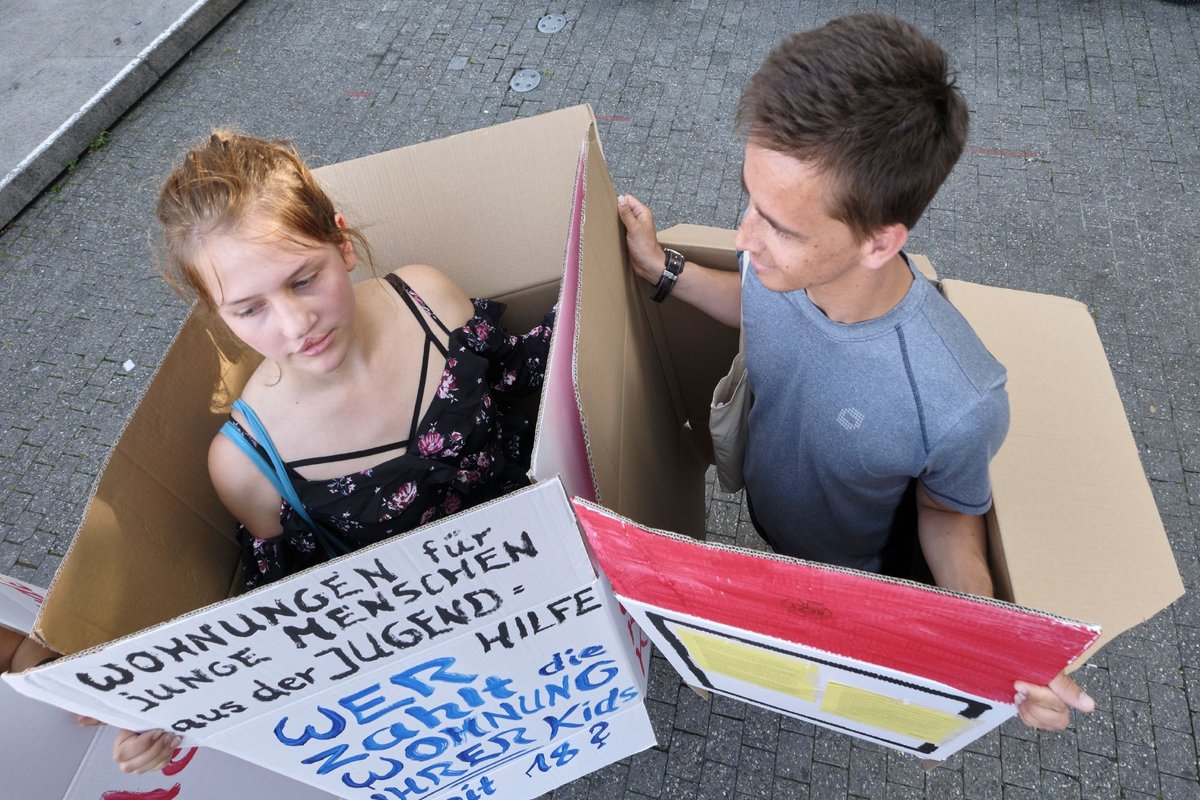 WOHNUNGEN für
junge MENSCHEN
aus der JUGEND=
HILFE
WER
zahlt die
WOHNUNG
IHRER Kids
mit 18?